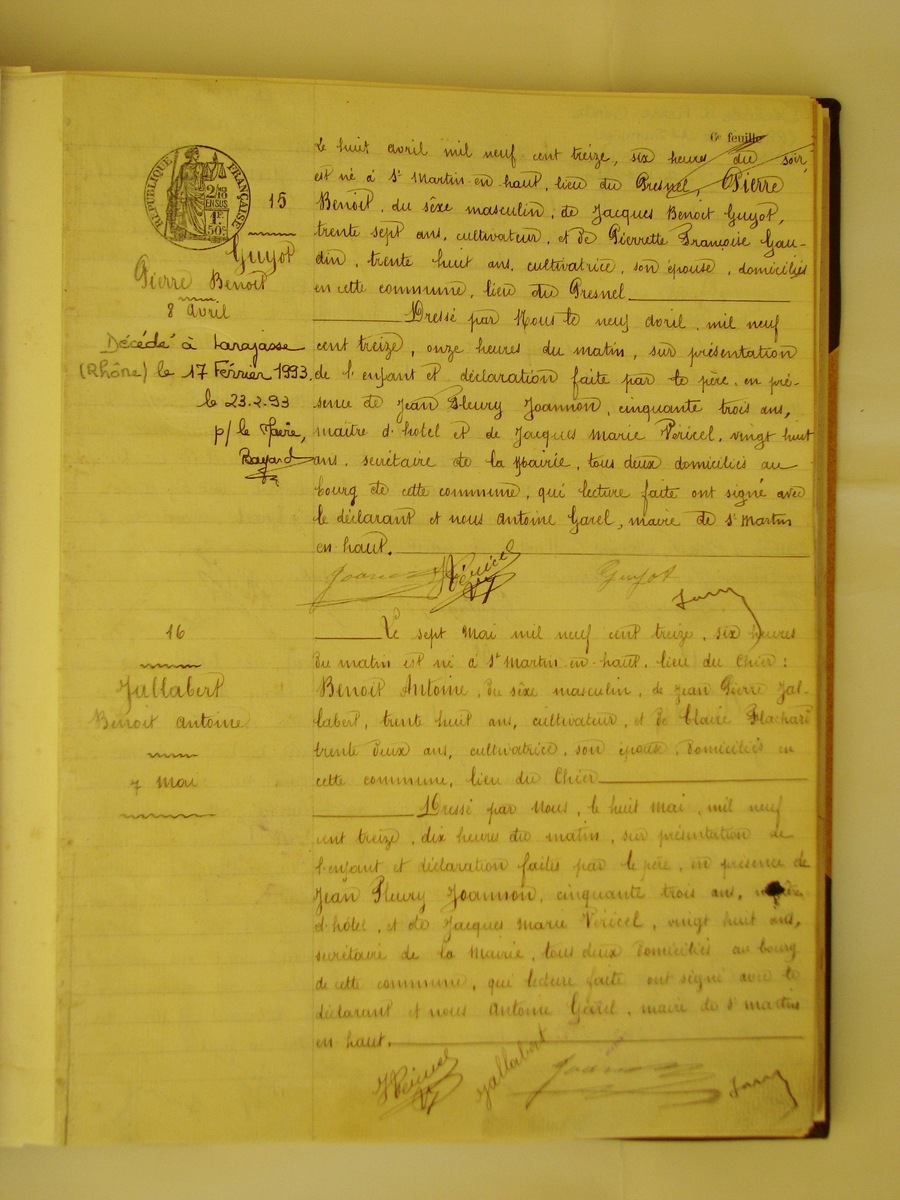 6e feuille
RÉPUBLIQUE FRANÇAISE
2/10
EN SUS
1F.
50c.
15
Guyot
Pierre Benoit
8 Avril
Décédé à Larajasse
(Rhône) le 17 Février 1993.
le 23.2.93
p/ le Maire,
Le huit avril mil neuf cent treize, six heures du soir
est né à St Martin en haut, lieu du Presnel, Pierre
Benoit, du sèxe masculin, de Jacques Benoit Guyot,
trente sept ans, cultivateur, et de Pierrette Françoise Gau-
din, trente huit ans, cultivatrice, son épouse, domiciliés
en cette commune, lieu du Presnel
Dressé par Nous le neuf avril, mil neuf
cent treize, onze heures du matin, sur présentation
de l'enfant et déclaration faite par le père, en pré-
sence de Jean Fleury Joannon, cinquante trois ans,
maitre d'hôtel et de Jacques Marie Véricel, vingt huit
ans, secrétaire de la Mairie, tous deux domiciliés au
bourg de cette commune, qui lecture faite ont signé avec
le déclarant et nous Antoine Garel, maire de St Martin
en haut.
Joannon Véricel Guyot
16
Jallabert
Benoit Antoine
7 Mai
Le sept Mai mil neuf cent treize, six heures
du matin est né à St Martin en haut, lieu du Chier :
Benoit Antoine, du sèxe masculin, de Jean Pierre Jal-
labert, trente huit ans, cultivateur, et de Claire Flachard
trente deux ans, cultivatrice, son époux, domiciliés en
cette commune, lieu du Chier
Dressé par Nous, le huit Mai, mil neuf
cent treize, dix heures du matin, sur présentation de
l'enfant et déclaration faites par le père, en présence de
Jean Fleury Joannon, cinquante trois ans, maitre
d'hôtel, et de Jacques Marie Véricel, vingt huit ans,
secrétaire de la Mairie, tous deux domiciliés au bourg
de cette commune, qui lecture faite ont signé avec le
déclarant et nous Antoine Garel, maire de St Martin
en haut.
Véricel Jallabert Joannon